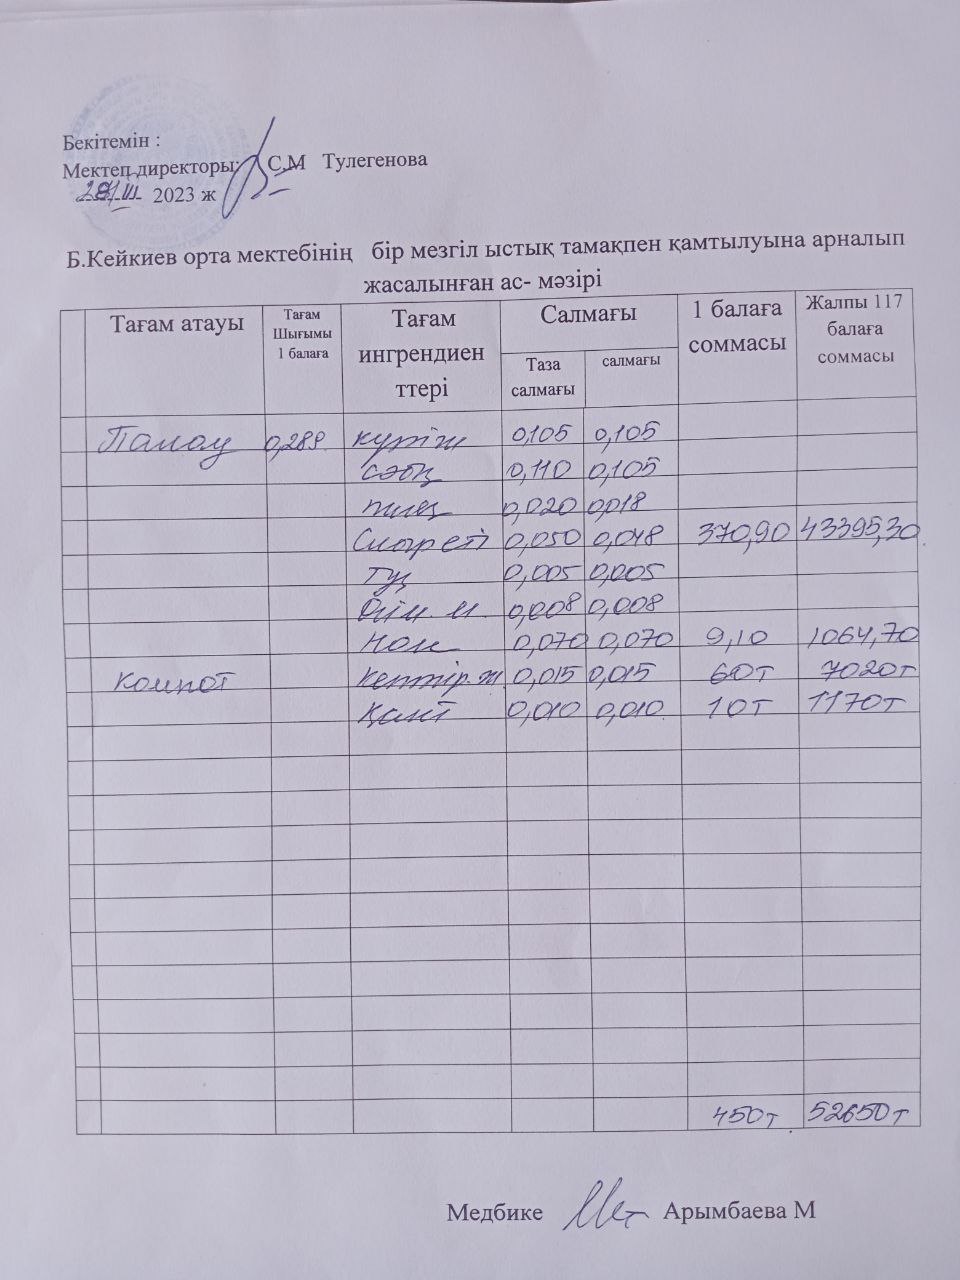 Бекітемін :
Мектеп директоры: С.М Тулегенова
2023 ж
Б.Кейкиев орта мектебінің бір мезгіл ыстық тамақпен қамтылуына арналып
жасалынған ас- мәзірі
Тағам атауы
Тағам
Шығымы
1 балаға
Тағам
ингрендиен
ттері
Салмағы
Таза
салмағы
салмағы
1 балаға
соммасы
Жалпы 117
балаға
соммасы
Палау 0,289 күріш 0,105 0,105
сәбіз 0,110 0,105
пияз 0,020 0,018
Сиыр еті 0,050 0,048 370,90 43395,30
тұз 0,005 0,005
Өсім. м. 0,008 0,008
Нан 0,070 0,070 9,10 1064,70
Компот Кептір.ж 0,015 0,015 60т 7020т
Қант 0,010 0,010 10т 1170т
450т 52650т
Медбике Арымбаева М